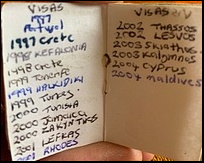 VISAS
1997
1997 Crete
1998 KEFALONIA
1998 Crete
1999 Tenerife
1999 HALKIDIKI
1999 Tunes
2000 Tunisia
2000 JAMAICA
2001 ZAKYNTHOS
2001 LEFKAS
2001 RHODES
VISAS
2002 THASSOS
2002 LESVOS
2003 Skiathos
2003 Kalymnos
2004 CYPRUS
2004 maldives